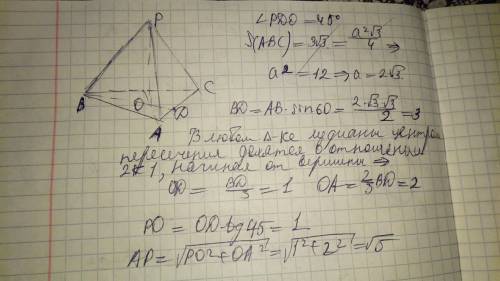 P
B
O
C
D
A
∠PDO = 45°
S(ABC) = 3√3 = a²√3/4 ⇒
a² = 12 ⇒ a = 2√3
BD = AB·sin60 = 2·√3·√3/2 = 3
В любом Δ-ке медианы центром
пересечения делятся в отношении
2:1, начиная от вершины ⇒
OD = BD/3 = 1 OA = 2/3 BD = 2
PO = OD·tg45 = 1
AP = √PO²+OA² = √1²+2² = √5